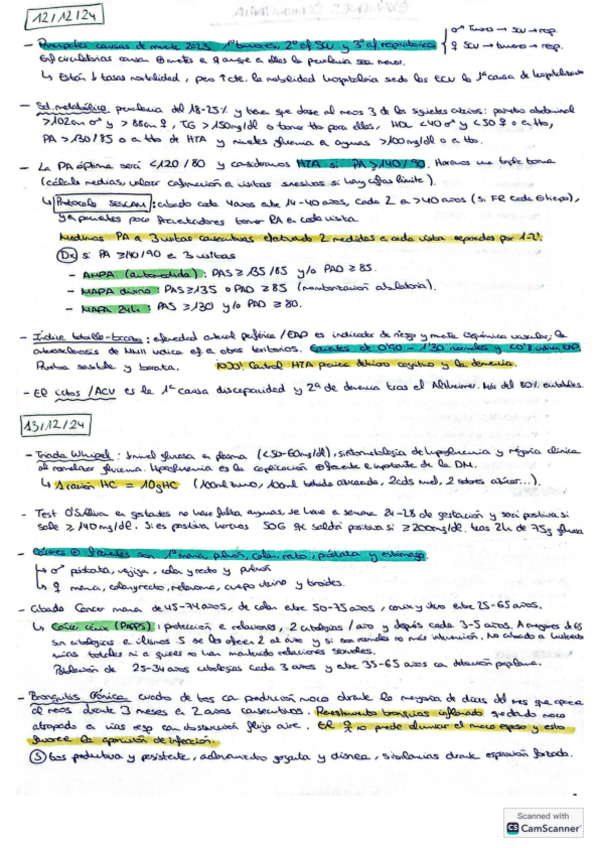 12/12/24
- Principales causas de muerte 2023, 1º tumores, 2º ef SCV y 3º ef respiratorias { ♂ Tumores → SCV → resp.
♀ SCV → tumores → resp.
Ef circulatorias causan ⊕ muertes a ♀ aunque a ellas la prevalencia sea menor.
↳ Están ↓ tasas mortalidad, pero ↑ cte. la morbilidad hospitalaria siendo las ECV la 1ª causa de hospitalización
- Sd. metabólico: prevalencia del 18-25% y tiene que darse al menos 3 de los siguientes criterios: perímetro abdominal
>102cm ♂ y >88cm ♀, TG >150mg/dl o tomar tto para ellos, HDL <40 ♂ y <50 ♀ o a tto,
PA >130/85 o a tto de HTA y niveles glucemia a ayunas >100mg/dl o a tto.
- La PA óptima será <120/80 y consideramos HTA si PA >140/90. Haremos una triple toma
(cálculo medias, valorar confirmación a visitas sucesivas si hay cifras límite).
↳ Protocolo SESCAM: cribado cada 4 años entre 14-40 años, cada 2 a >40 años (si FR cada tiempo),
y a pacientes poco frecuentadores tomar PA en cada visita.
Medimos PA a 3 visitas consecutivas efectuando 2 medidas a cada visita separadas por 1-2'.
(Dx) si PA ≥140/90 en 3 visitas
- AMPA (automedida): PAS ≥135/85 y/o PAD ≥85.
- MAPA diurno: PAS ≥135 o PAD ≥85 (monitorización ambulatoria).
- MAPA 24h: PAS ≥130 y/o PAD ≥80.
- Índice tobillo-brazo: enfermedad arterial periférica/EAP es indicador de riesgo y muerte isquémica vascular; la
aterosclerosis de MMII indica ef a otros territorios.
Prueba sensible y barata. Control HTA previene deterioro cognitivo y la demencia.
- El ictus/ACV es la 1ª causa discapacidad y 2ª de demencia tras el Alzheimer. Más del 80% evitables.
13/12/24
- Triada Whipple: ↓ nivel glucosa en plasma (<50-60mg/dl), sintomatología de hipoglucemia y mejoría clínica
al normalizar glucemia. Hipoglucemia es la complicación ⊕ frecuente e importante de la DM.
↳ 1 ración HC = 10gHC (100ml zumo, 100ml bebida azucarada, 2cds miel, 2 sobres azúcar...).
- Test O'Sullivan en gestantes no hace falta ayunas, se hace a semana 24-28 de gestación y será positiva si
sale ≥140mg/dl. Si es positiva haremos SOG que saldrá positiva si ≥200mg/dl tras 2h de 75g glucosa
- Cánceres ⊕ frecuentes son: 1º mama, pulmón, colon, recto, próstata y estómago.
↳ ♂ próstata, vejiga, colon y recto y pulmón
↳ ♀ mama, colon y recto, melanoma, cuerpo uterino y tiroides.
- Cribado Cáncer mama de 45-74 años, de colon entre 50-75 años, cérvix y útero entre 25-65 años.
↳ Cáncer cérvix (PAPPS): protección en relaciones, 2 citologías/año y después cada 3-5 años. A mayores de 65
sin citologías en últimos 5 se les ofrece 2 al año y si son normales no más intervención. No cribado a histerecto-
mías totales ni a quienes no han mantenido relaciones sexuales.
Población de 25-34 años citologías cada 3 años y entre 35-65 años con
- Bronquitis Crónica: cuadro de tos con producción moco durante la mayoría de días del mes que aparece
al menos durante 3 meses en 2 años consecutivos. Revestimiento bronquios inflamado quedando moco
atrapado en vías resp con obstrucción flujo aire. no puede eliminar el moco espeso y esto
favorece la aparición de infección.
(S) tos productiva y persistente, aclaramiento garganta y disnea, sibilancias durante espiración forzada.
Scanned with
CS CamScanner